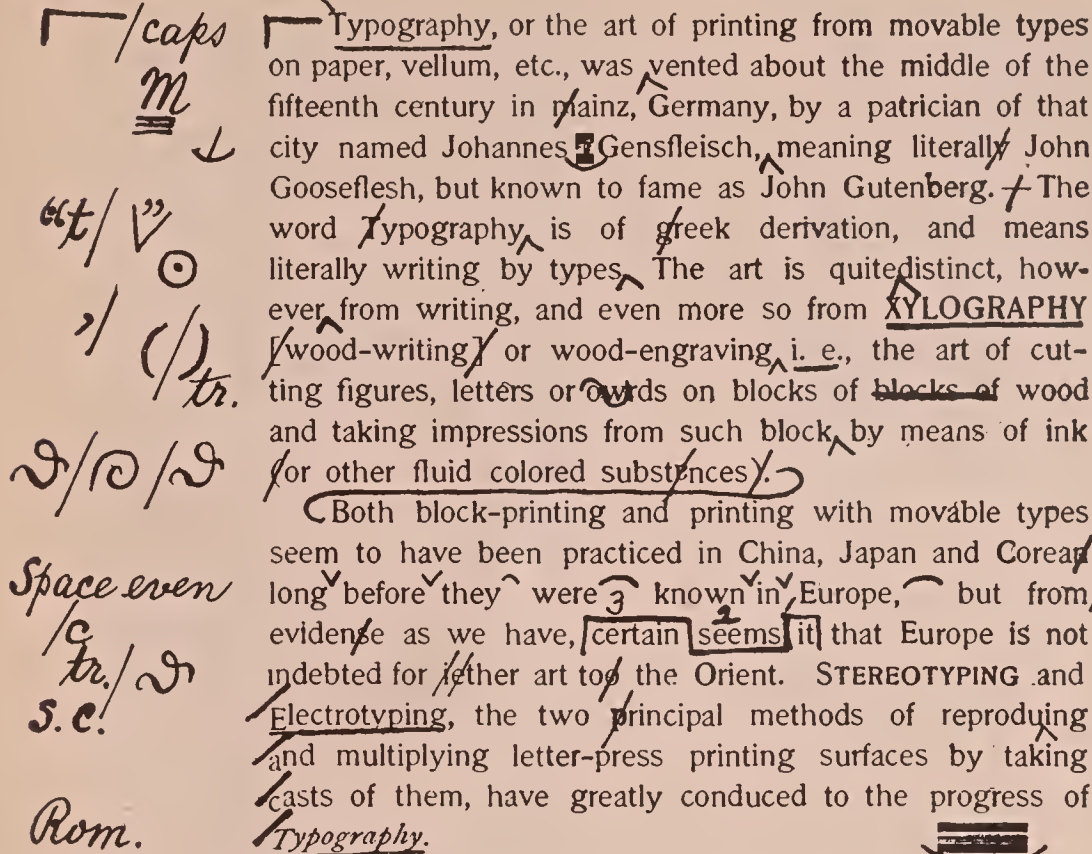 /caps Typography, or the art of printing from movable types
on paper, vellum, etc., was vented about the middle of the
M fifteenth century in mainz, Germany, by a patrician of that
city named Johannes Gensfleisch, meaning literally John
Gooseflesh, but known to fame as John Gutenberg. The
“t/ ” word Typography is of greek derivation, and means
literally writing by types The art is quitedistinct, how-
ever from writing, and even more so from XYLOGRAPHY
,/ (/) [wood-writing] or wood-engraving i. e., the art of cut-
tr. ting figures, letters or owrds on blocks of blocks of wood
and taking impressions from such block by means of ink
(or other fluid colored substences).
Both block-printing and printing with movable types
seem to have been practiced in China, Japan and Corean
Space even long before they were known in Europe, but from
/c evidense as we have, certain seems it that Europe is not
tr./ indebted for iether art too the Orient. STEREOTYPING and
s.c. Electrotyping, the two principal methods of reproduing
and multiplying letter-press printing surfaces by taking
casts of them, have greatly conduced to the progress of
Rom. Typography.